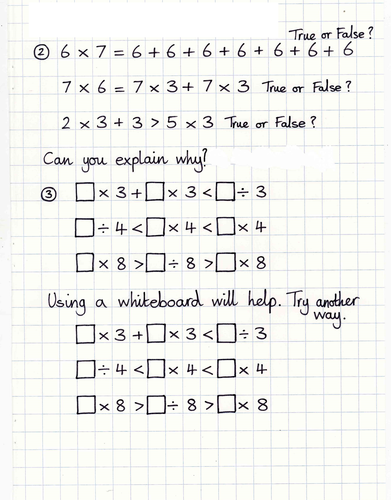 True or False?
② 6 × 7 = 6 + 6 + 6 + 6 + 6 + 6 + 6
7 × 6 = 7 × 3 + 7 × 3 True or False?
2 × 3 + 3 > 5 × 3 True or False?
Can you explain why?
③ □ × 3 + □ × 3 < □ ÷ 3
□ ÷ 4 < □ × 4 < □ × 4
□ × 8 > □ ÷ 8 > □ × 8
Using a whiteboard will help. Try another
way.
□ × 3 + □ × 3 < □ ÷ 3
□ ÷ 4 < □ × 4 < □ × 4
□ × 8 > □ ÷ 8 > □ × 8